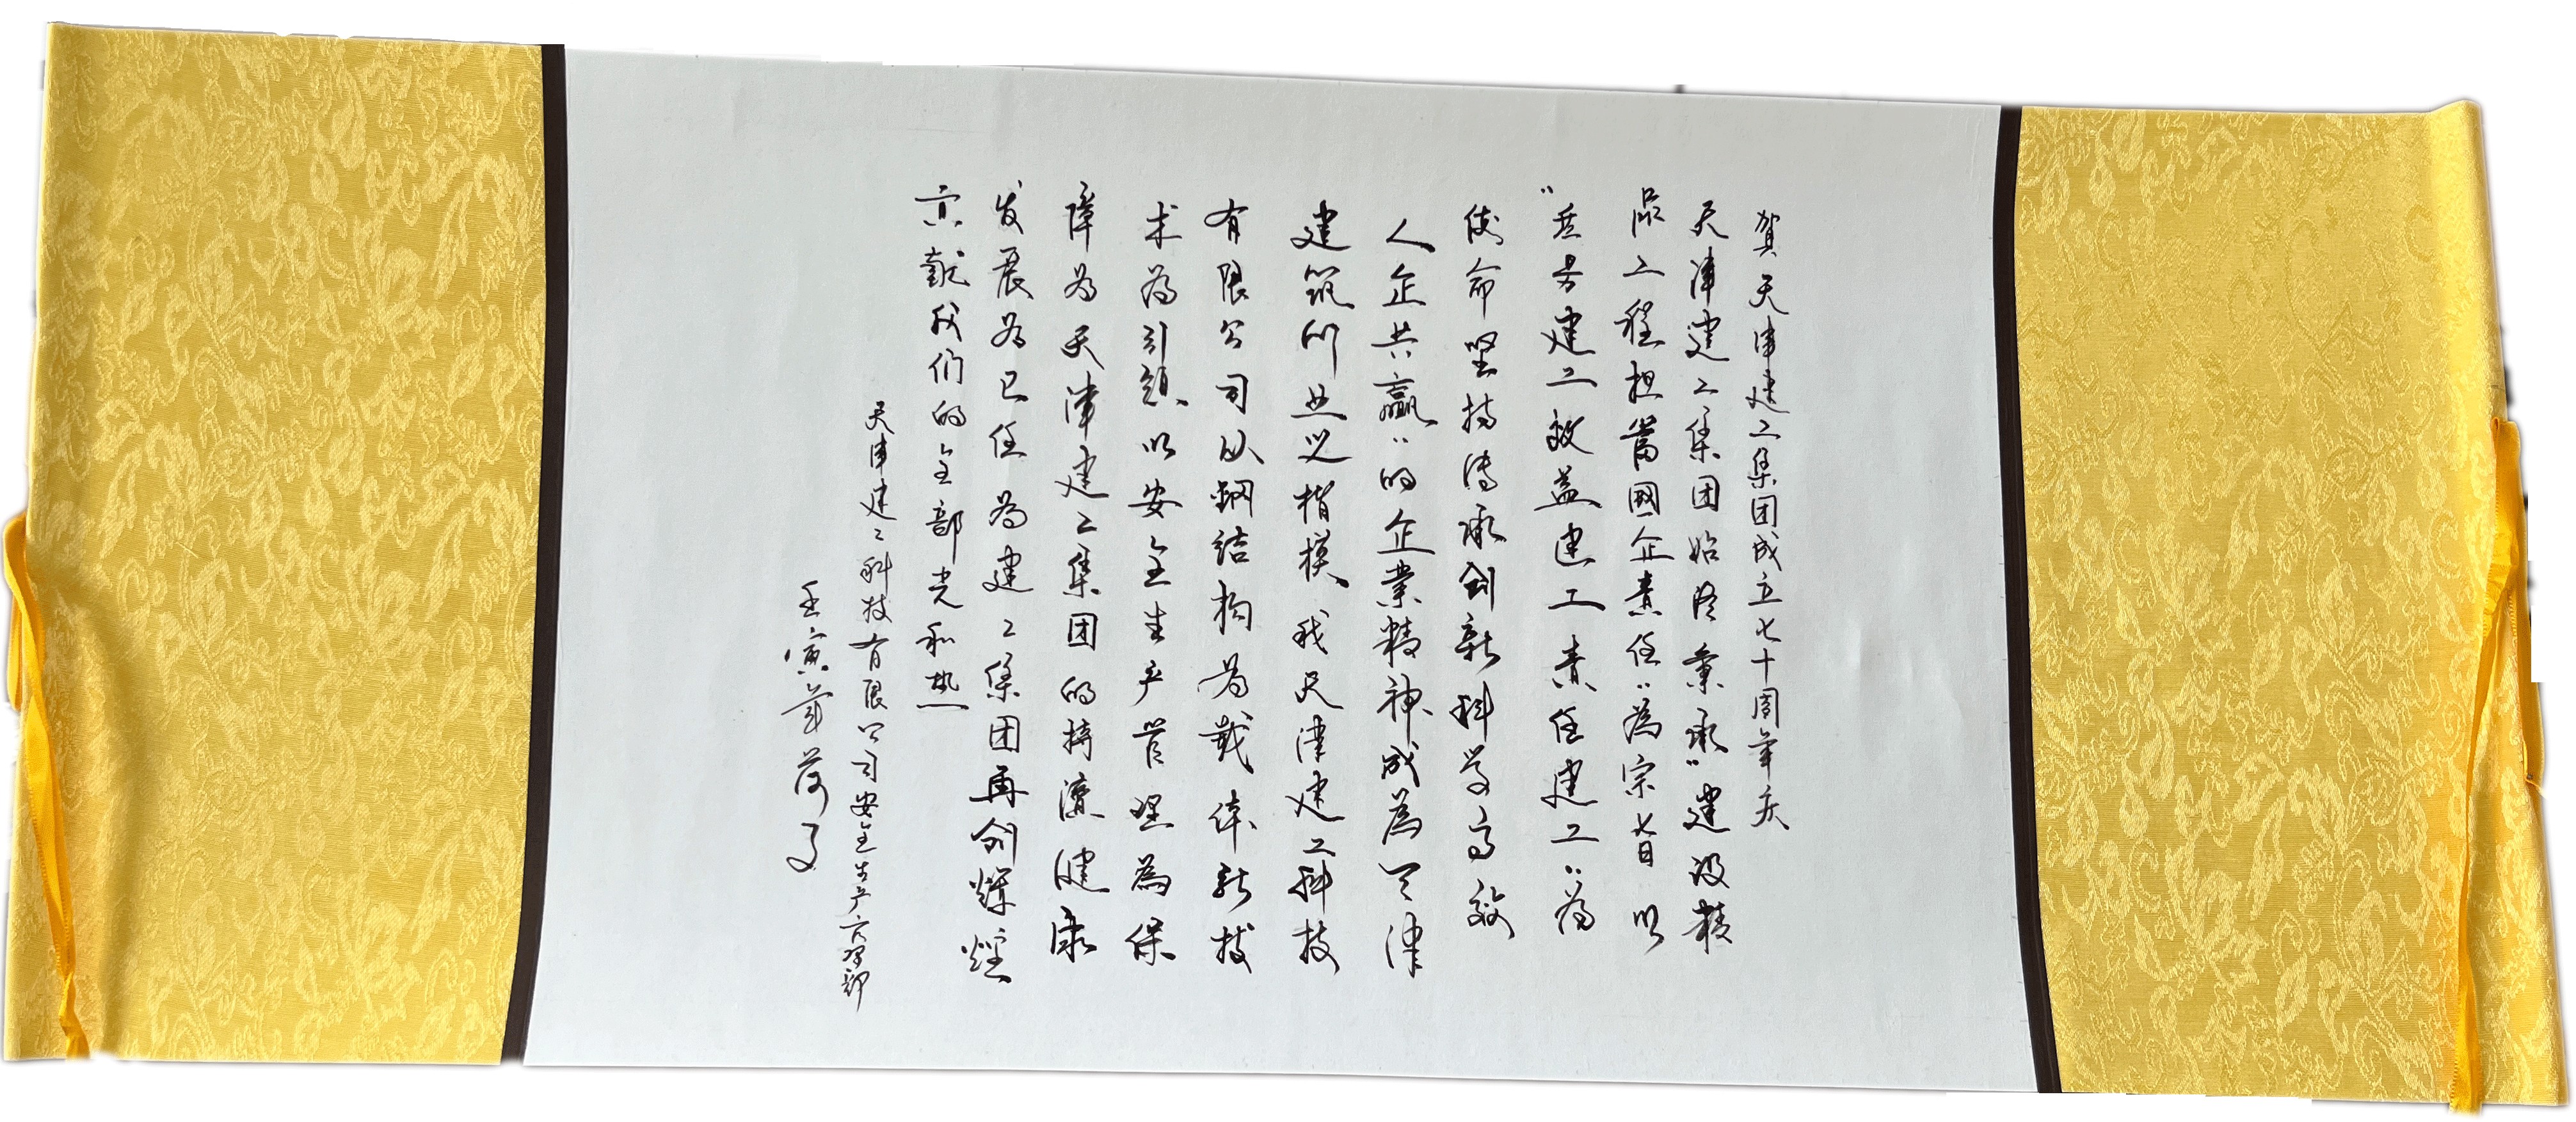 贺天津建工集团成立七十周年庆
天津建工集团始终秉承"建设精
品工程担當國企責任"為宗旨以
"质量建工效益建工责任建工"為
使命坚持传承創新科学高效
人企共赢"的企業精神成為天津
建筑行业之楷模、我天津建工科技
有限公司以鋼结构為载体新技
术為引领、以安全生产管理為保
障為天津建工集团的持续健康
发展為己任為建工集团再创辉煌
贡献我们的全部光和热
天津建工科技有限公司安全生产管理部
壬寅年荷月